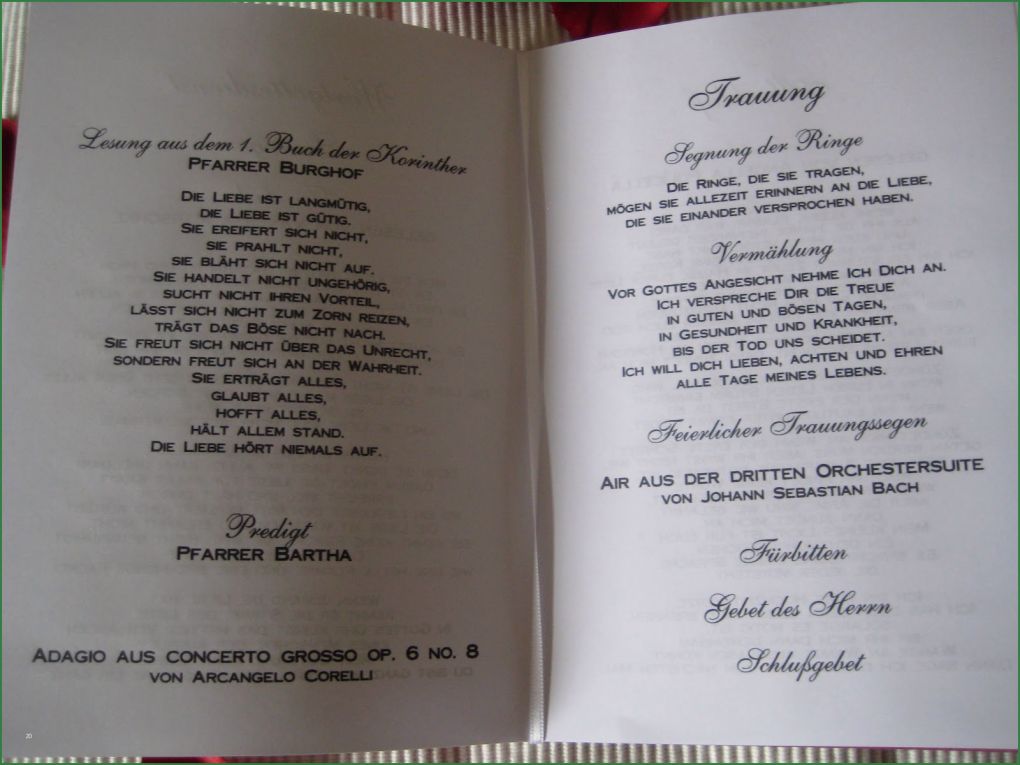 Lesung aus dem 1. Buch der Korinther
PFARRER BURGHOF
DIE LIEBE IST LANGMÜTIG,
DIE LIEBE IST GÜTIG.
SIE EREIFERT SICH NICHT,
SIE PRAHLT NICHT,
SIE BLÄHT SICH NICHT AUF.
SIE HANDELT NICHT UNGEHÖRIG,
SUCHT NICHT IHREN VORTEIL,
LÄSST SICH NICHT ZUM ZORN REIZEN,
TRÄGT DAS BÖSE NICHT NACH.
SIE FREUT SICH NICHT ÜBER DAS UNRECHT,
SONDERN FREUT SICH AN DER WAHRHEIT.
SIE ERTRÄGT ALLES,
GLAUBT ALLES,
HOFFT ALLES,
HÄLT ALLEM STAND.
DIE LIEBE HÖRT NIEMALS AUF.
Predigt
PFARRER BARTHA
ADAGIO AUS CONCERTO GROSSO OP. 6 NO. 8
VON ARCANGELO CORELLI
20
Trauung
Segnung der Ringe
DIE RINGE, DIE SIE TRAGEN,
MÖGEN SIE ALLEZEIT ERINNERN AN DIE LIEBE,
DIE SIE EINANDER VERSPROCHEN HABEN.
Vermählung
VOR GOTTES ANGESICHT NEHME ICH DICH AN.
ICH VERSPRECHE DIR DIE TREUE
IN GUTEN UND BÖSEN TAGEN,
IN GESUNDHEIT UND KRANKHEIT,
BIS DER TOD UNS SCHEIDET.
ICH WILL DICH LIEBEN, ACHTEN UND EHREN
ALLE TAGE MEINES LEBENS.
Feierlicher Trauungssegen
AIR AUS DER DRITTEN ORCHESTERSUITE
VON JOHANN SEBASTIAN BACH
Fürbitten
Gebet des Herrn
Schlußgebet